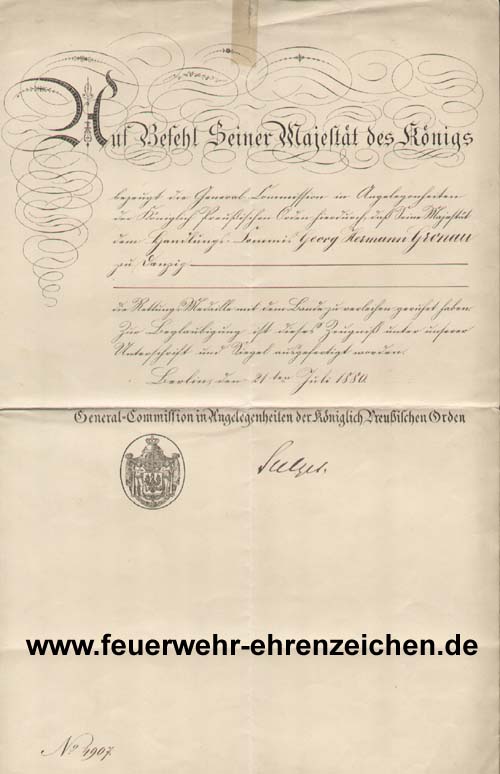 Auf Befehl Seiner Majestät des Königs
bezeugt die General-Commission in Angelegenheiten
der Königlich Preußischen Orden hierdurch, daß Seine Majestät
dem Handlungs-Commis Georg Hermann Gronau
zu Danzig
die Rettungs-Medaille mit dem Bande zu verleihen geruhet haben.
Zur Beglaubigung ist dieses Zeugniß unter unserer
Unterschrift und Siegel ausgefertigt worden.
Berlin, den 21ten Juli 1880.
General-Commission in Angelegenheiten der Königlich Preußischen Orden
www.feuerwehr-ehrenzeichen.de
No 4907.